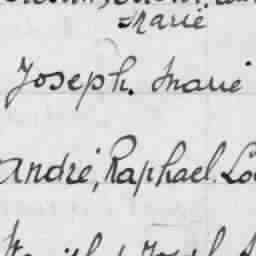 Marie
Joseph. Marie
André, Raphael. Lo